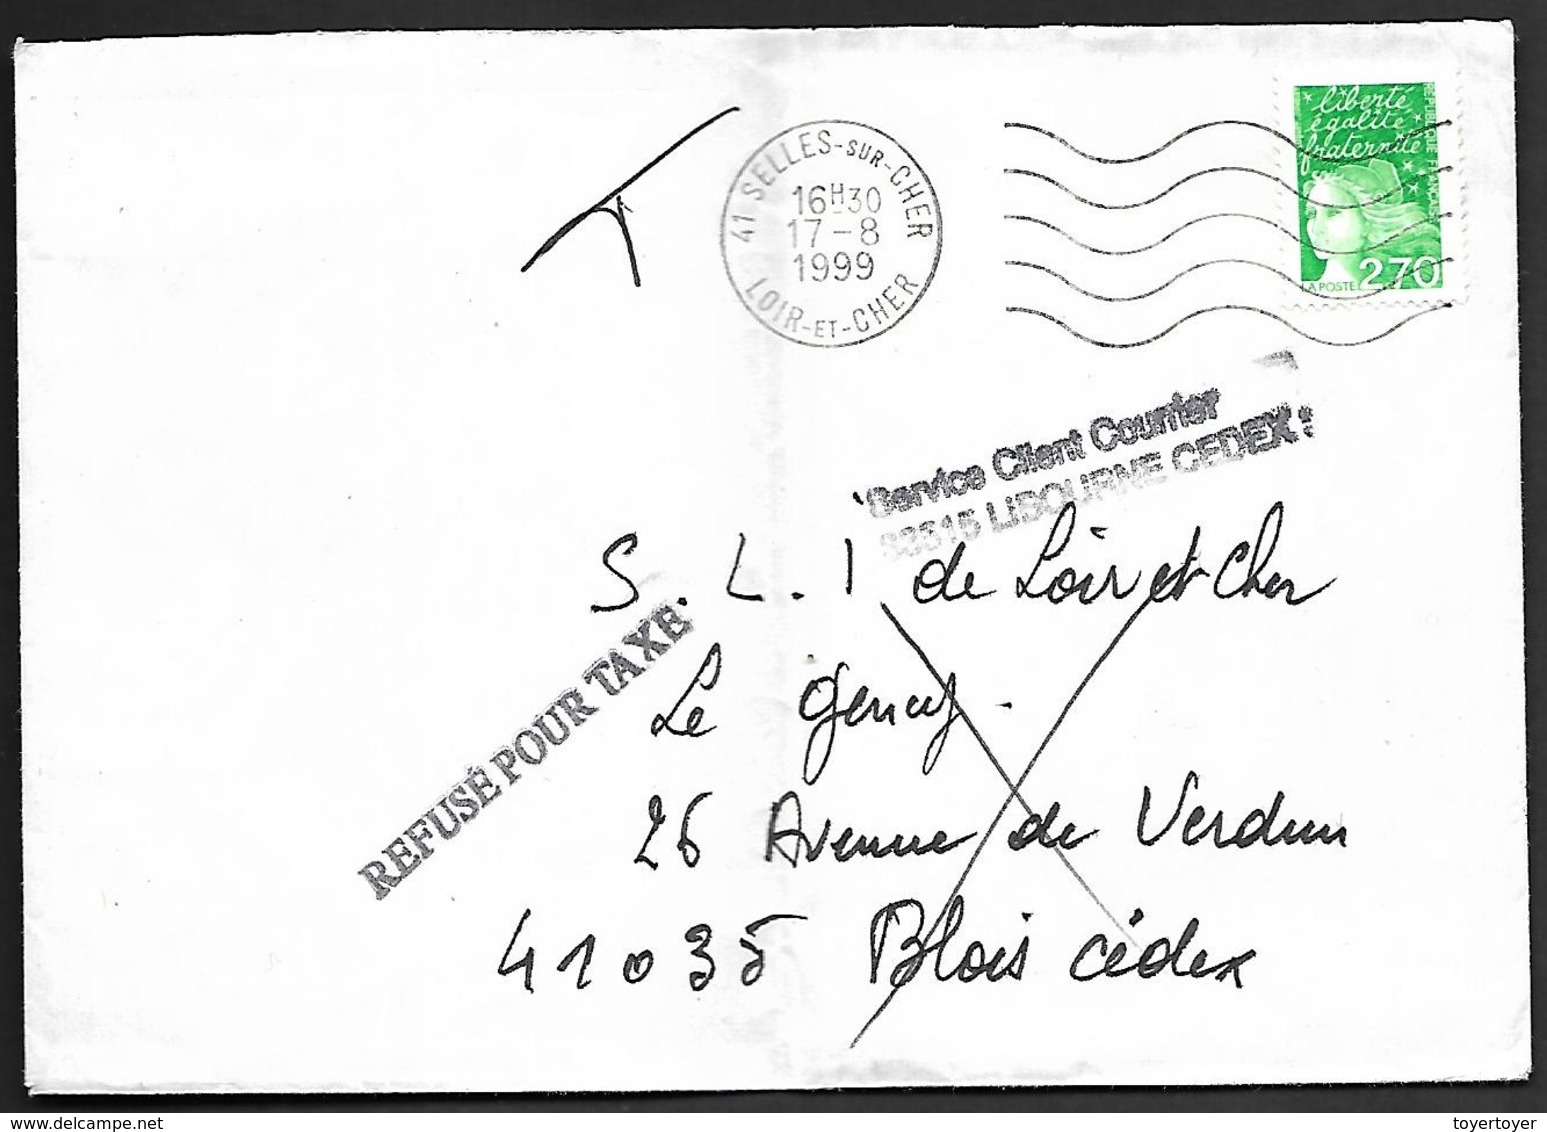 T
41 SELLES-SUR-CHER
16H30
17-8
1999
LOIR-ET-CHER
liberté
égalité
fraternité
LA POSTE 2,70
Service Client Courrier
33515 LIBOURNE CEDEX
S. L. I de Loir et Cher
REFUSÉ POUR TAXE
Le
26 Avenue de Verdun
41035 Blois cédex
delcampe.net
toyertoyer